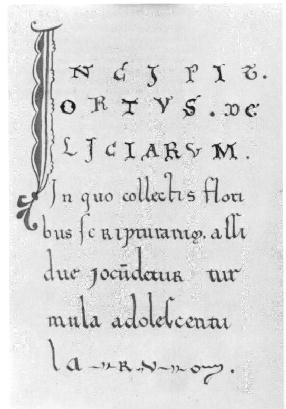 INCIPIT.
ORTVS. DE
LICIARVM.
In quo collectis flori
bus ſcripturaꝝ. aſſi
due jocūdetur tur
mula adoleſcentu
la